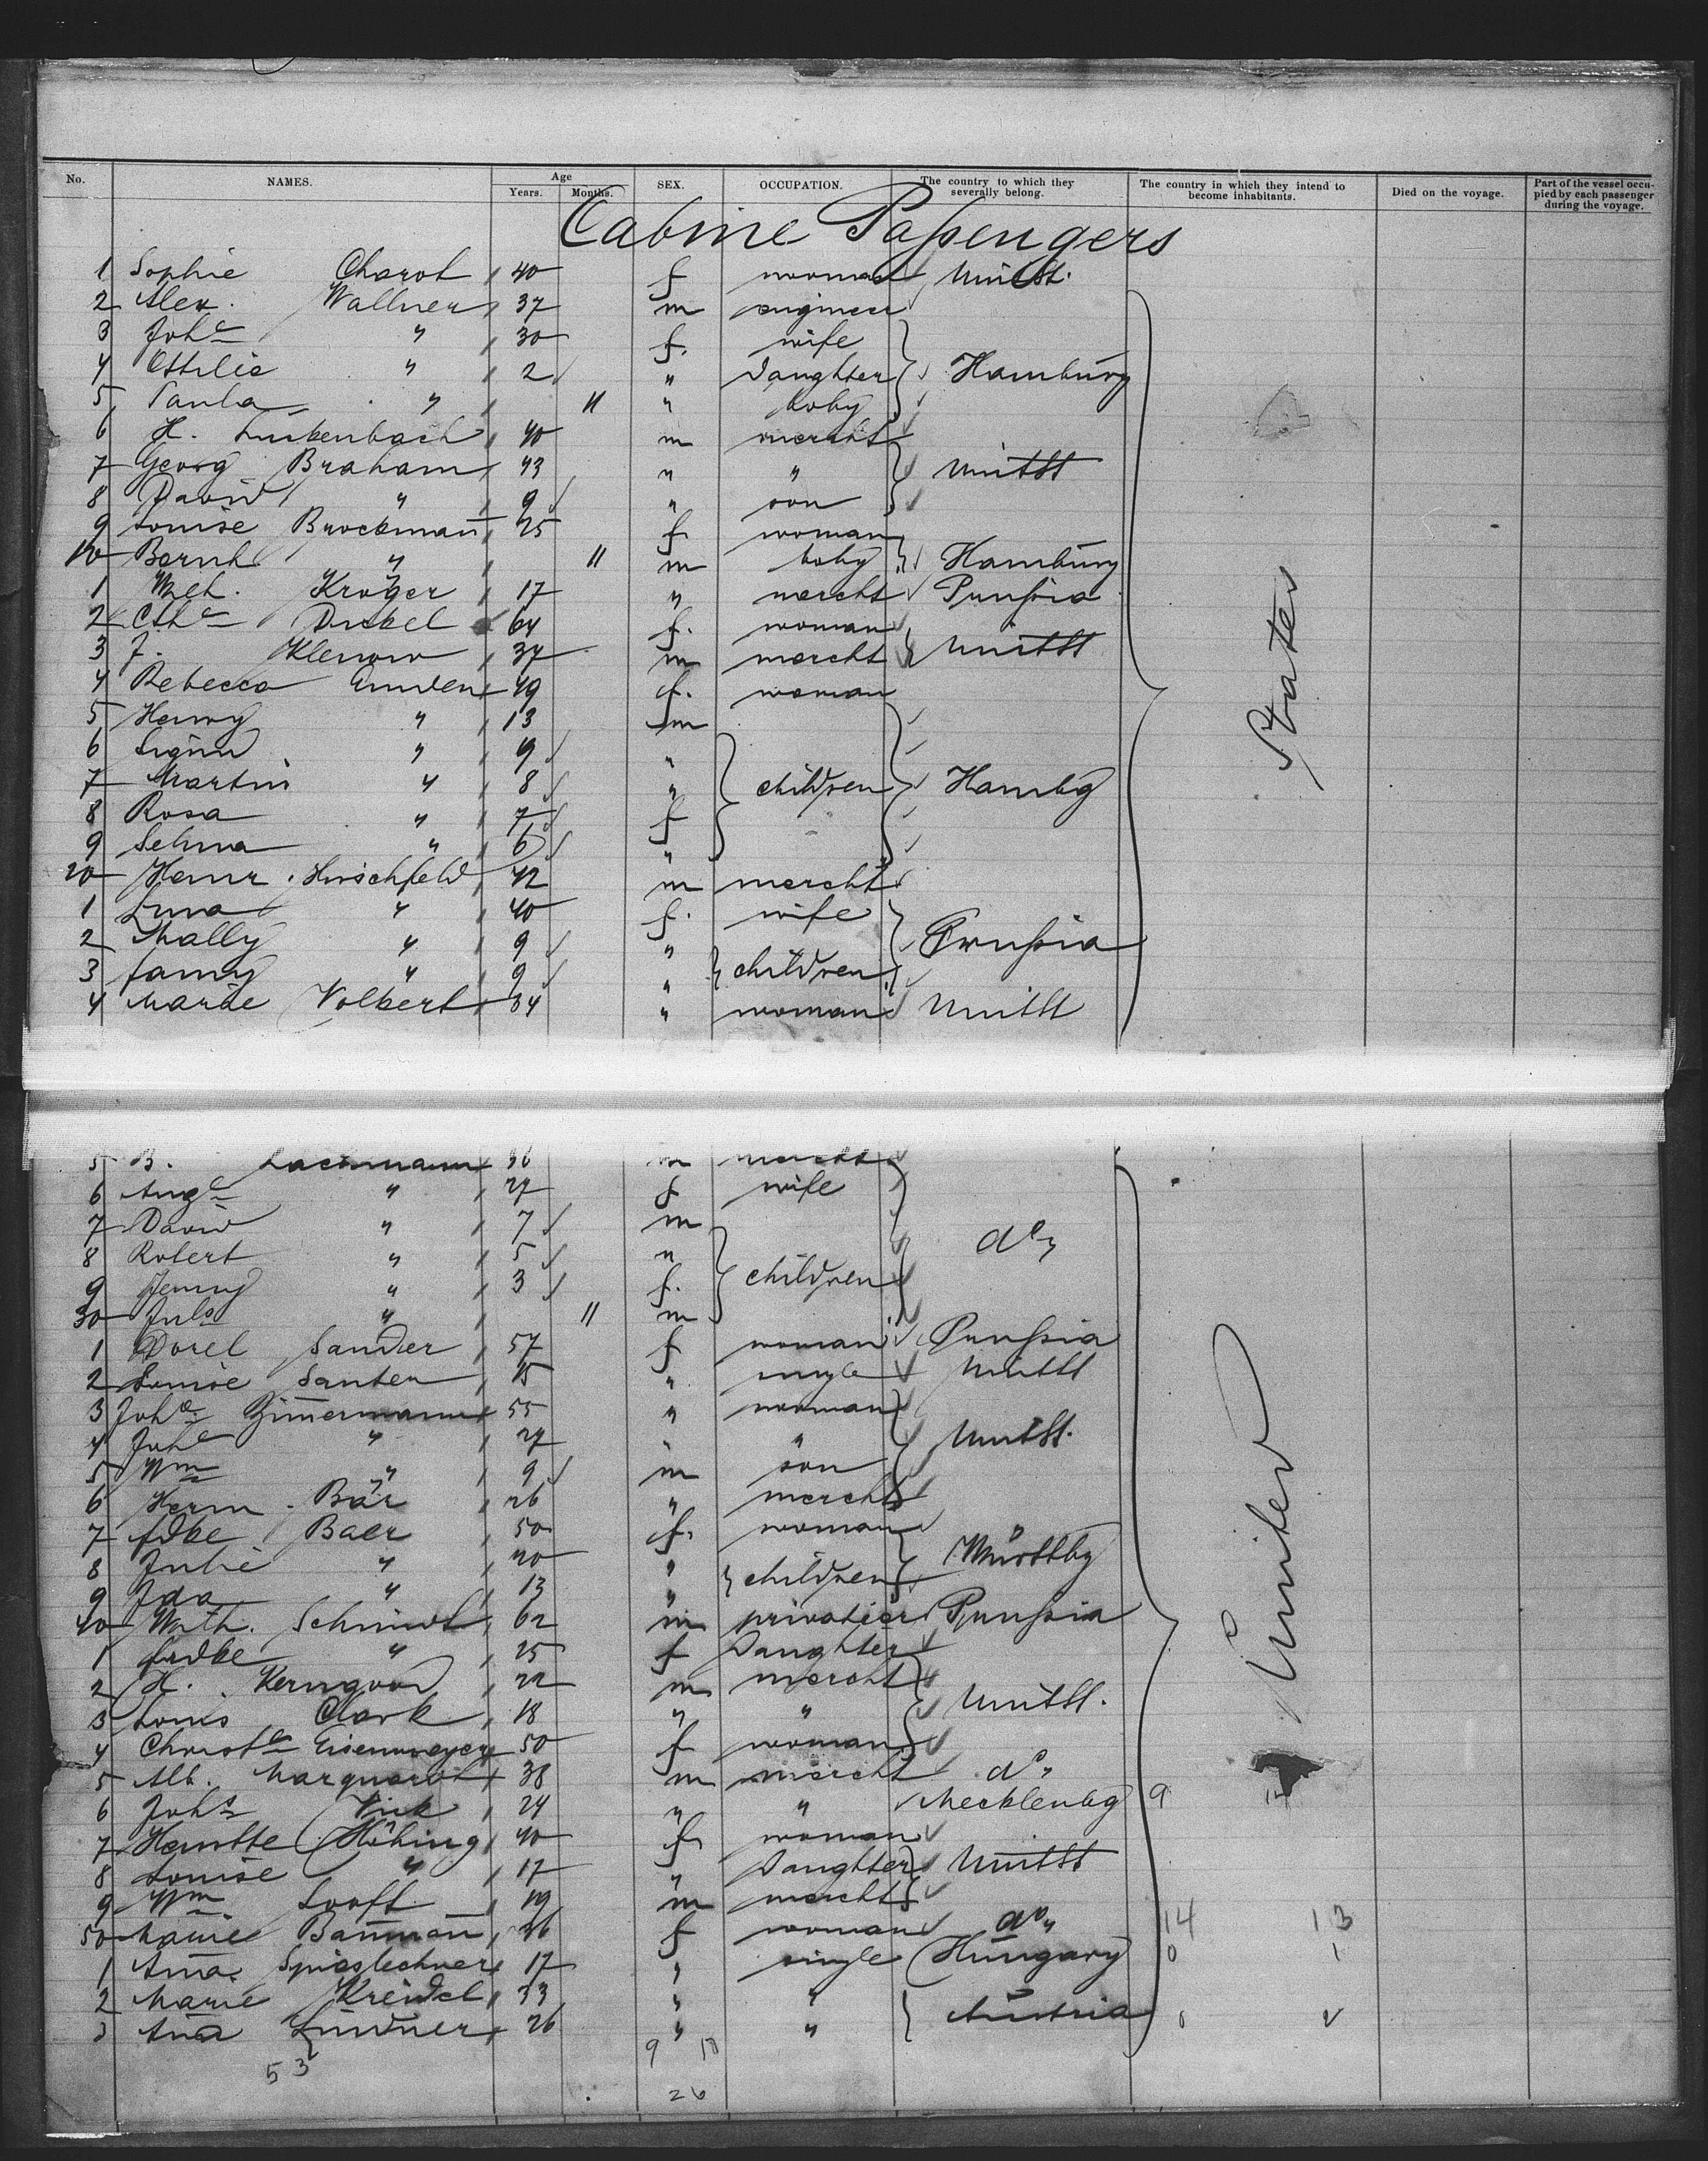 No. NAMES. Age Years. Months. SEX. OCCUPATION. The country to which they severally belong. The country in which they intend to become inhabitants. Died on the voyage. Part of the vessel occupied by each passenger during the voyage.
Cabine Passengers
1 Sophie Charot 40 f woman Unit St.
2 Alex. Wallner 37 m engineer
3 Johe " 30 f. wife
4 Ottilie " 2 " Daughter Hamburg
5 Paula " 11 " baby
6 H. Luckenbach 40 m mercht
7 Georg Braham 43 " " Unit St
8 David " 9 " son
9 Louise Brockman̄ 25 f. woman
10 Bernh " 11 m baby Hamburg
1 Wilh. Kroger 17 " mercht Prussia
2 Cthe Dubel 64 f. woman
3 J. Klenow 37 m mercht Unit St
4 Rebecca Emden 49 f. woman
5 Henry " 13 m
6 Sigmd " 9 "
7 Martin " 8 " children Hambg
8 Rosa " 7 f
9 Selma " 6 "
20 Heinr. Hirschfeld 42 m mercht
1 Lina " 40 f. wife
2 Mally " 9 " Prussia
3 Fanny " 9 " children
4 Marie Volkert 34 " woman Unit St
5 B. Lachmann 36 m mercht
6 Auge " 27 f wife
7 David " 7 m
8 Robert " 5 " do
9 Jenny " 3 f. children
30 Juls " 11 m
1 Dorel Sander 57 f woman Prussia
2 Louise Santen 15 " single Unit St
3 Johe Zim̄ermann 55 " woman
4 Johe " 27 " " Unit St.
5 Wm " 9 m son
6 Herm. Bär 26 " mercht
7 Fdke Baer 50 f. woman
8 Julie " 20 " children Württbg
9 Ida " 13 "
40 Wilh. Schmidt 62 m privatier Prussia
1 Frdke " 25 f Daughter
2 H. Kerngood 22 m mercht
3 Louis Clark 18 " " Unit St.
4 Christe Eisenmeyer 50 f woman
5 Alb. Marquardt 38 m mercht do
6 Johs Vick 24 " " Mecklenbg 9
7 Henrtte Höbing 40 f woman
8 Louise " 17 " Daughter Unit St
9 Wm Looft 19 m mercht
50 Marie Bam̄an̄ 26 f woman do 14 13
1 An̄a Spieslechner 17 " single Hungary 0 1
2 Marie Kreidel 33 " "
3 An̄a Lindner 26 " " Austria
United States
53
9 17
26